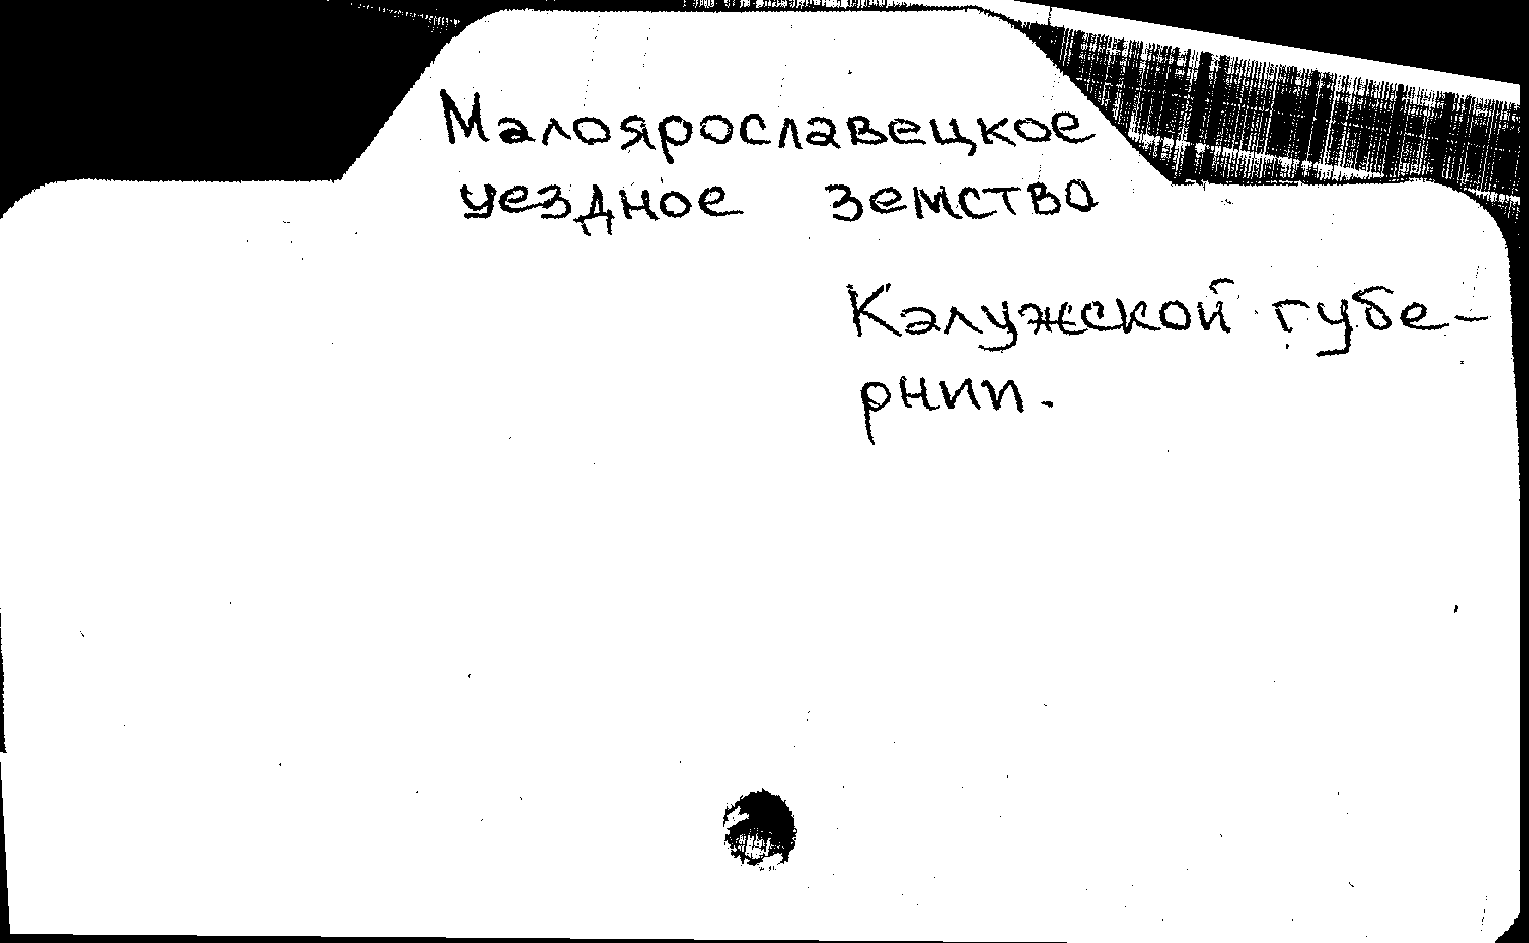 Малоярославецкое
уездное земство
Калужской губе-
рнии.